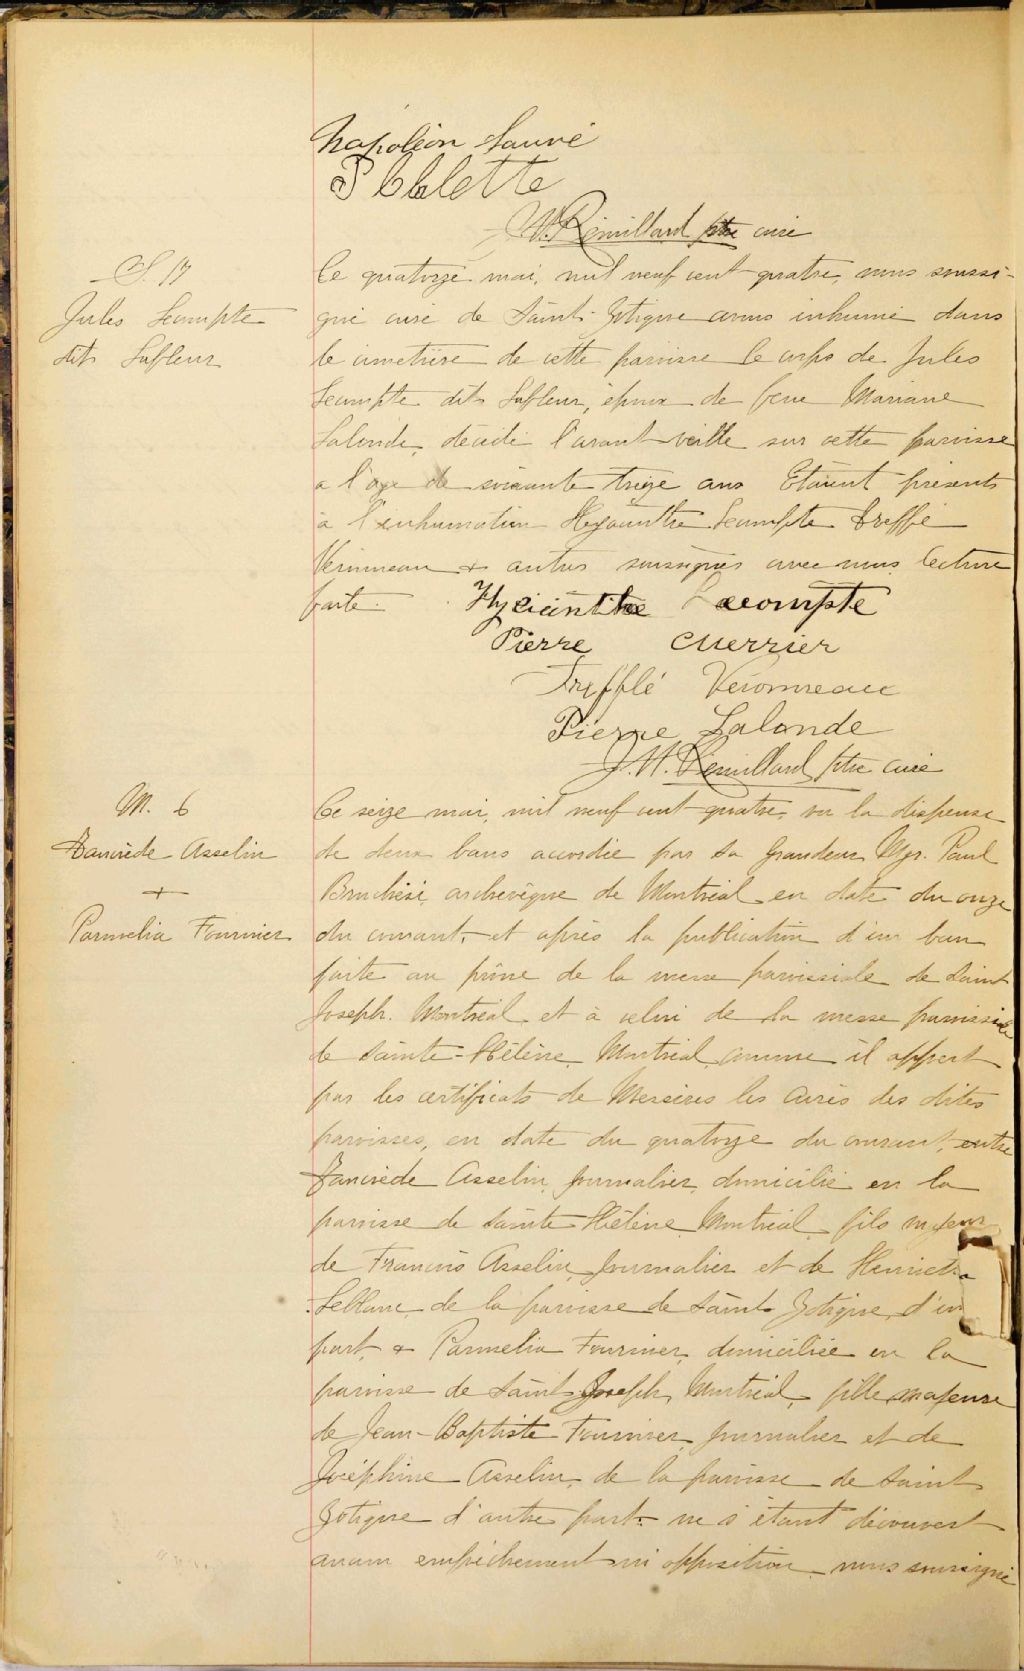 Napoléon Sauvé
P Collette
J.W. Rémillard ptre curé
S. 17
Jules Lecompte
dit Lafleur
Ce quatorze mai, mil neuf cent quatre, nous soussi-
gné curé de Saint-Zotique avons inhumé dans
le cimetière de cette paroisse le corps de Jules
Lecompte dit Lafleur, époux de feue Mariane
Lalonde, décédé l'avant veille sur cette paroisse
a l'age de soixante treize ans Etaient présents
à l'inhumation Hyacinthe Lecompte Treffé
Veronneau & autres soussignés avec nous lecture
faite.
Hyciantthe Lecompte
Pierre Cuerrier
Trefflé Veronneau
Pierre Lalonde
J.W. Rémillard ptre curé
M. 6
Tancrède Asselin
+
Parmelia Fournier
Ce seize mai, mil neuf cent quatre, vu la dispense
de deux bans accordée par Sa Grandeur Mgr. Paul
Bruchési, archevêque de Montréal en date du onze
du courant, et après la publication d'un ban
faite au prône de la messe paroissiale de Saint
Joseph, Montréal et à celui de la messe paroissiale
de Sainte-Hélène, Montréal, comme il appert
par les certificats de Messires les Curés des dites
paroisses, en date du quatorze du courant, entre
Tancrède Asselin, journalier, domicilié en la
paroisse de Sainte Hélène, Montréal, fils majeur
de François Asselin, journalier et de Henriette
Leblanc de la paroisse de Saint Zotique, d'un
part, & Parmelia Fournier, domiciliée en la
paroisse de Saint Joseph, Montréal, fille majeure
de Jean-Baptiste Fournier, journalier et de
Joséphine Asselin, de la paroisse de Saint
Zotique d'autre part: ne s'étant découvert
aucun empêchement ni opposition, nous soussigné